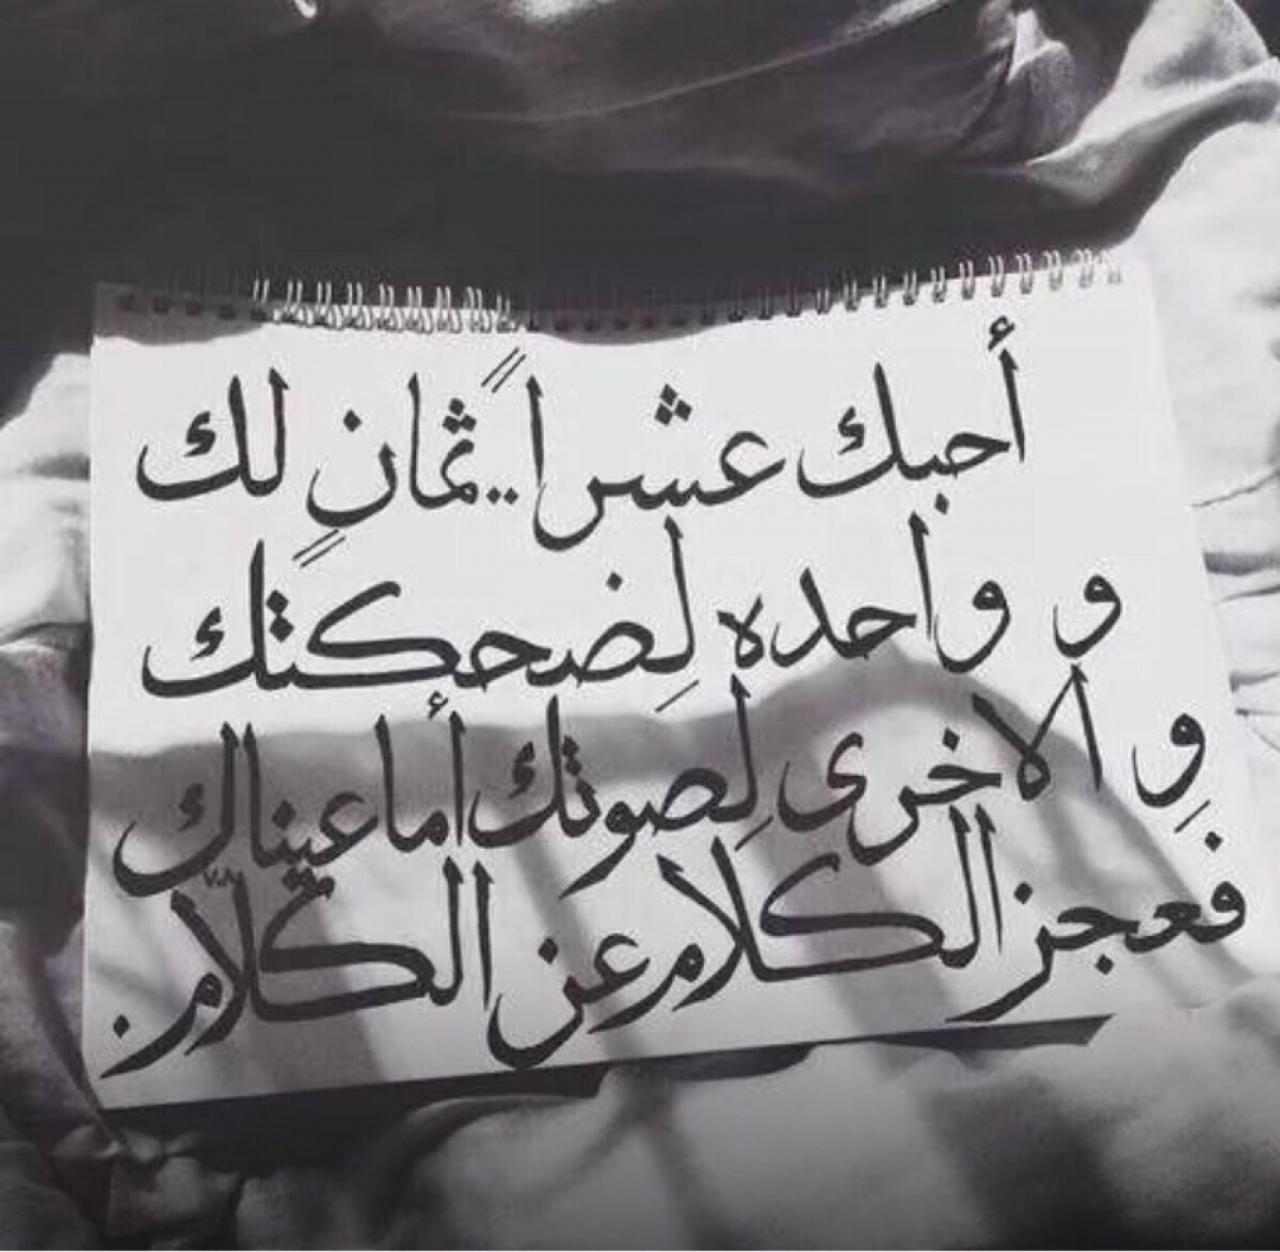 أحبك عشراً..ثمانٍ لك
و واحده لِضحكتك
وِ الاخرى لِصوتك أما عيناك
فعجز الكلام عن الكلام.